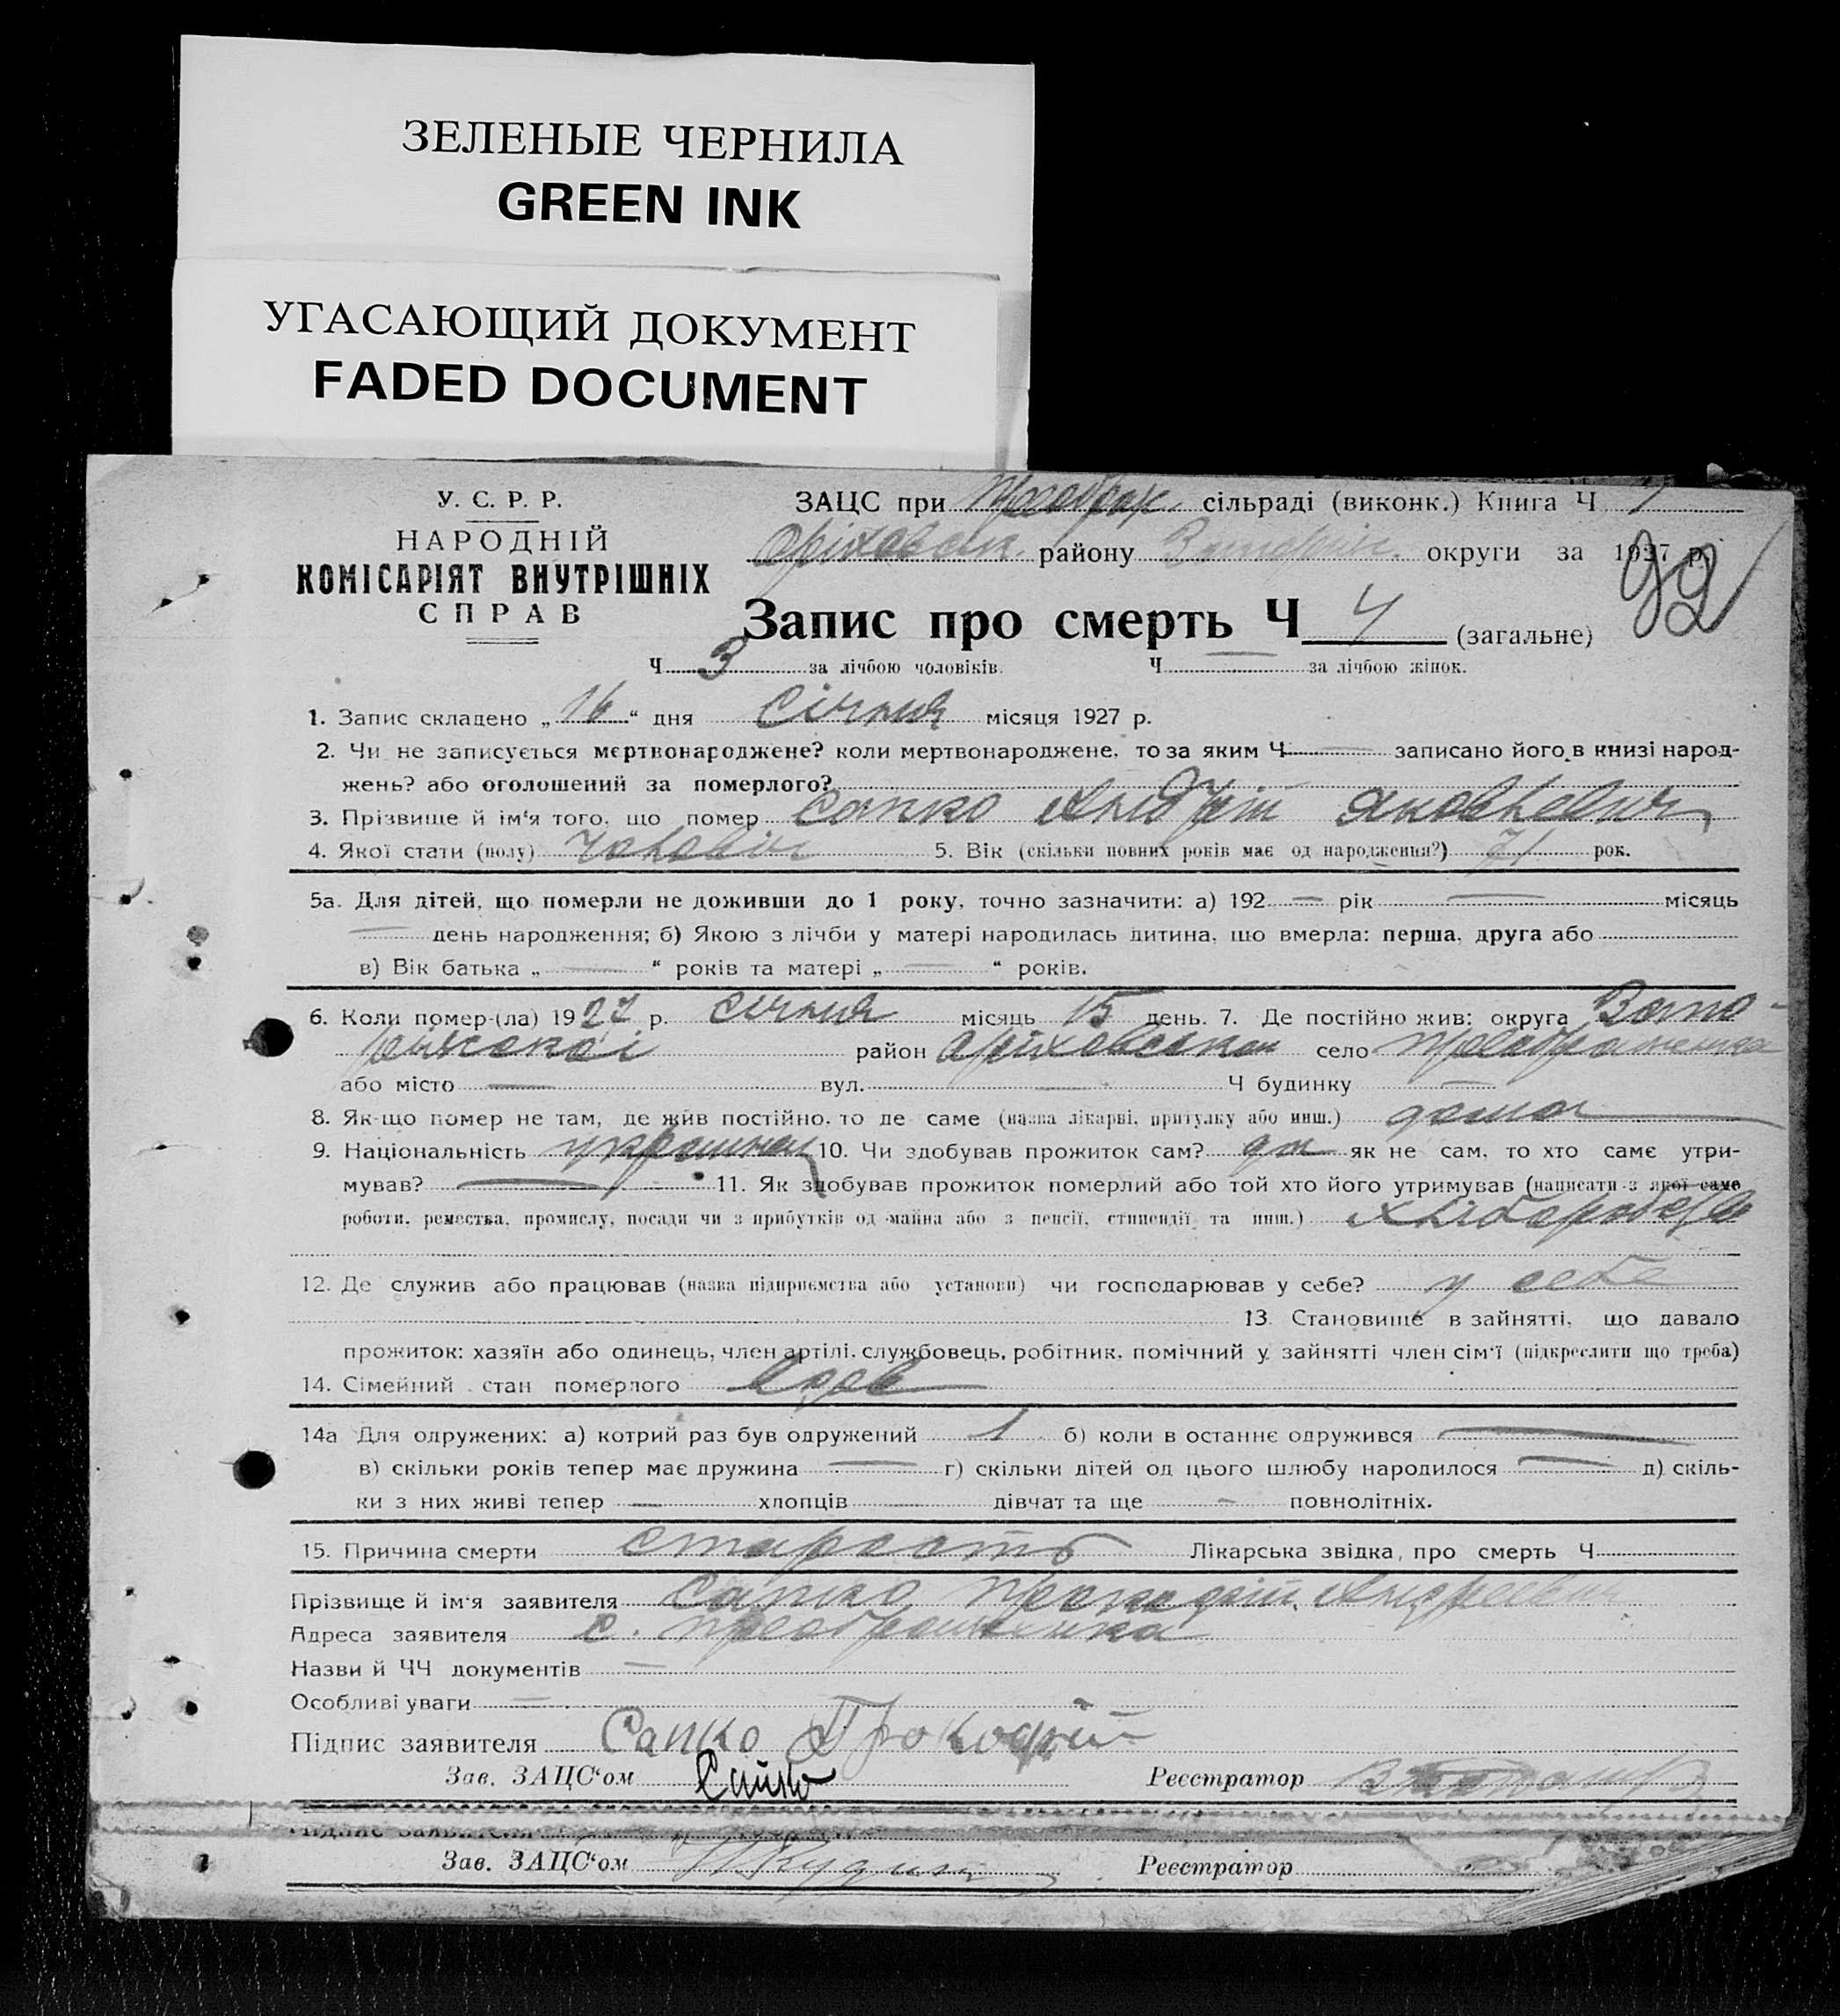 ЗЕЛЕНЫЕ ЧЕРНИЛА
GREEN INK
УГАСАЮЩИЙ ДОКУМЕНТ
FADED DOCUMENT
У. С. Р. Р.
НАРОДНІЙ
КОМІСАРІЯТ ВНУТРІШНІХ
СПРАВ
ЗАЦС при Преображ. сільраді (виконк.) Книга Ч
Оріховськ. району Запоріж. округи за 1927 р.
92
Запис про смерть Ч 4 (загальне)
Ч 3 за лічбою чоловіків. Ч — за лічбою жінок.
1. Запис складено „ 16 “ дня Січня місяця 1927 р.
2. Чи не записується мертвонароджене? коли мертвонароджене, то за яким Ч — записано його в книзі народ-
жень? або оголошений за померлого?
3. Прізвище й ім'я того, що помер Сапко Андрій Яковлевич
4. Якої стати (полу) Чоловіч 5. Вік (скільки повних років має од народження?) 71 рок.
5а. Для дітей, що померли не доживши до 1 року, точно зазначити: а) 192 — рік — місяць
— день народження; б) Якою з лічби у матері народилась дитина, що вмерла: перша, друга або
в) Вік батька „ — “ років та матері „ — “ років.
6. Коли помер-(ла) 1927 р. Січня місяць 15 день. 7. Де постійно жив: округа Запо-
ріжської район Оріховський село Преображенка
або місто — вул. — Ч будинку —
8. Як-що помер не там, де жив постійно, то де саме (назва лікарні, притулку або инш.) дома
9. Національність українец 10. Чи здобував прожиток сам? да як не сам, то хто саме утри-
мував? — 11. Як здобував прожиток померлий або той хто його утримував (написати з якої саме
роботи, ремества, промислу, посади чи з прибутків од майна або з пенсії, стипендії та инш.) Хлібороб
12. Де служив або працював (назва підприємства або установи) чи господарював у себе? у себе
13. Становище в зайнятті, що давало
прожиток: хазяїн або одинець, член артілі, службовець, робітник, помічний у зайнятті член сім'ї (підкреслити що треба)
14. Сімейний стан померлого вдов
14а Для одружених: а) котрий раз був одружений 1 б) коли в останнє одружився —
в) скільки років тепер має дружина — г) скільки дітей од цього шлюбу народилося — д) скіль-
ки з них живі тепер — хлопців дівчат та ще — повнолітніх.
15. Причина смерти старость Лікарська звідка, про смерть Ч
Прізвище й ім'я заявителя Сапко Прокофій Андреевич
Адреса заявителя с. Преображенка
Назви й ЧЧ документів —
Особливі уваги —
Підпис заявителя Сапко Прокофій
Зав. ЗАЦС'ом Реєстратор
Підпис заявителя
Зав. ЗАЦС'ом Реєстратор